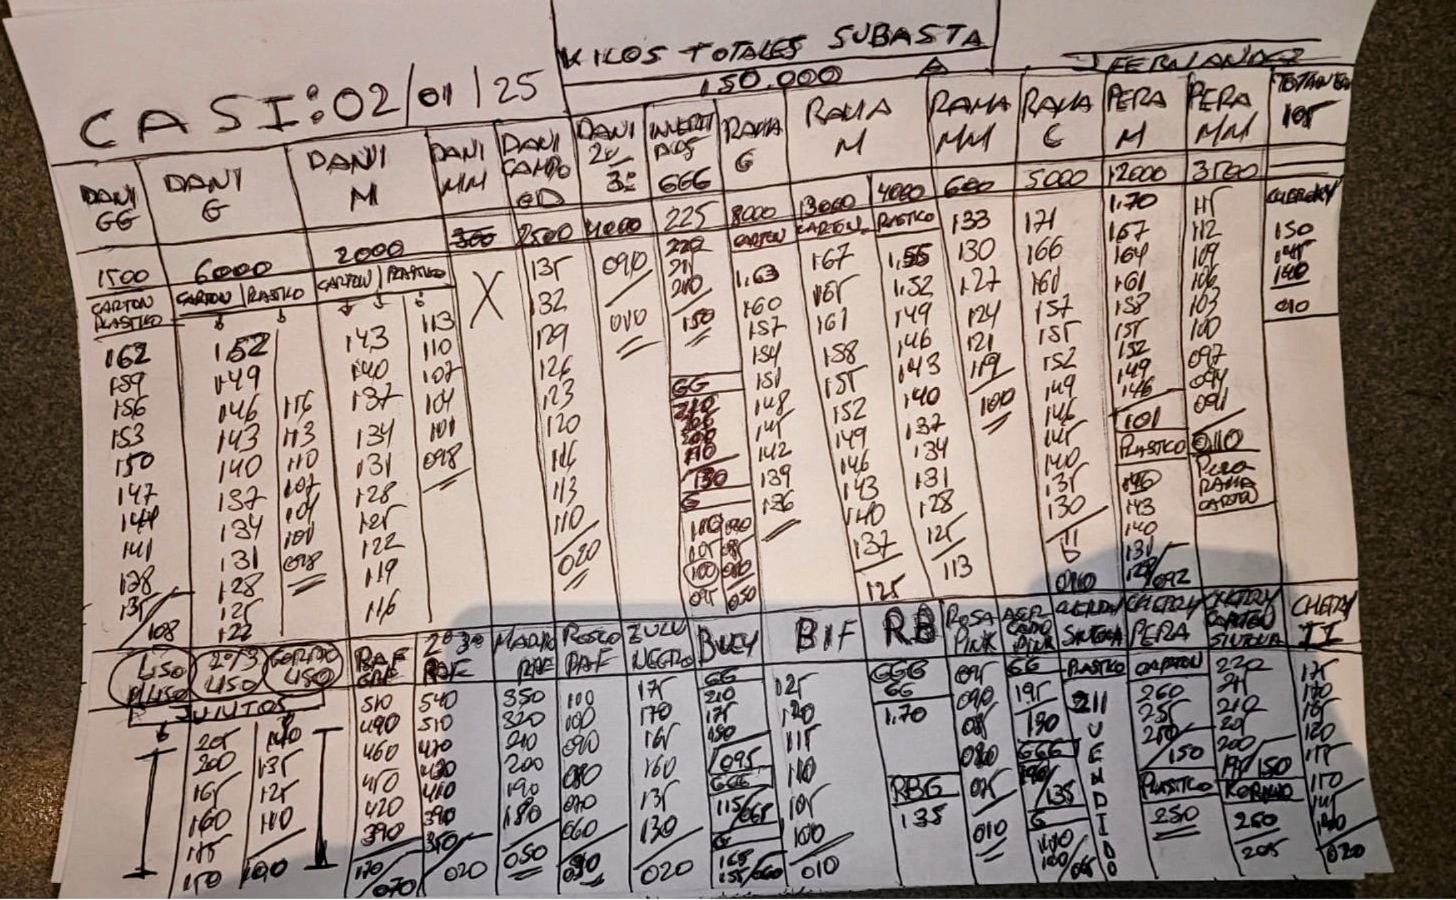 KILOS TOTALES SUBASTA
150.000
J FERNANDEZ
CASI: 02/01/25
DANI GG
DANI G
DANI M
DANI MM
DANI CAMPO
DANI 2ª 3ª
GGG
RAMA G
RAMA M
RAMA MM
RAMA C
PERA M
PERA MM
105
1500
6000
2000
300
2500
4000
225
8000
13000
4000
600
5000
12000
3500
CARTON PLASTICO
CARTON PLASTICO
CARTON PLASTICO
CARTON
CARTON
PLASTICO
162
159
156
153
150
147
144
141
128
135
108
152
149
146
143
140
137
134
131
128
125
122
116
113
110
107
104
101
098
143
140
137
134
131
128
125
122
119
116
113
110
107
104
101
098
X
135
132
129
126
123
120
116
113
110
020
090
010
220
150
GG
210
200
130
G
100
095
163
160
157
154
151
148
145
142
139
136
167
165
161
158
155
152
149
146
143
140
137
125
1,55
1,52
149
146
143
140
137
134
131
128
125
113
133
130
127
124
121
119
100
171
166
161
157
155
152
149
146
145
140
135
130
1.70
167
164
161
158
155
152
149
146
101
PLASTICO
146
143
140
131
128/092
115
112
109
106
103
100
097
094
091
010
PERA
RAMA
CARTON
150
145
140
010
LISO
2º/3 LISO
LISO
JUNTOS
205
200
165
160
155
150
140
135
125
110
100
RAF
510
490
460
450
420
390
170/070
2º 3º
RAF
540
510
470
430
410
390
350
020
RAF
350
320
210
200
190
180
050
ROSCO
RAF
100
100
090
080
070
060
030
ZULU
NEGRO
175
170
165
160
135
130
020
BUEY
GG
210
175
150
095
GGG
115/065
G
165
155/060
BIF
125
120
115
110
105
100
010
RB
GGG
GG
1.70
RBG
135
ROSA
PINK
095
090
085
080
075
010
PINK
GG
195
190
GGG
190/135
G
PLASTICO
211
VENDIDO
CHERRY
PERA
CARTON
260
255
250
150
PLASTICO
250
CHERRY
CARTON
220
215
210
205
200
195/150
260
205
CHERRY
II
175
170
165
120
115
110
105
100
020